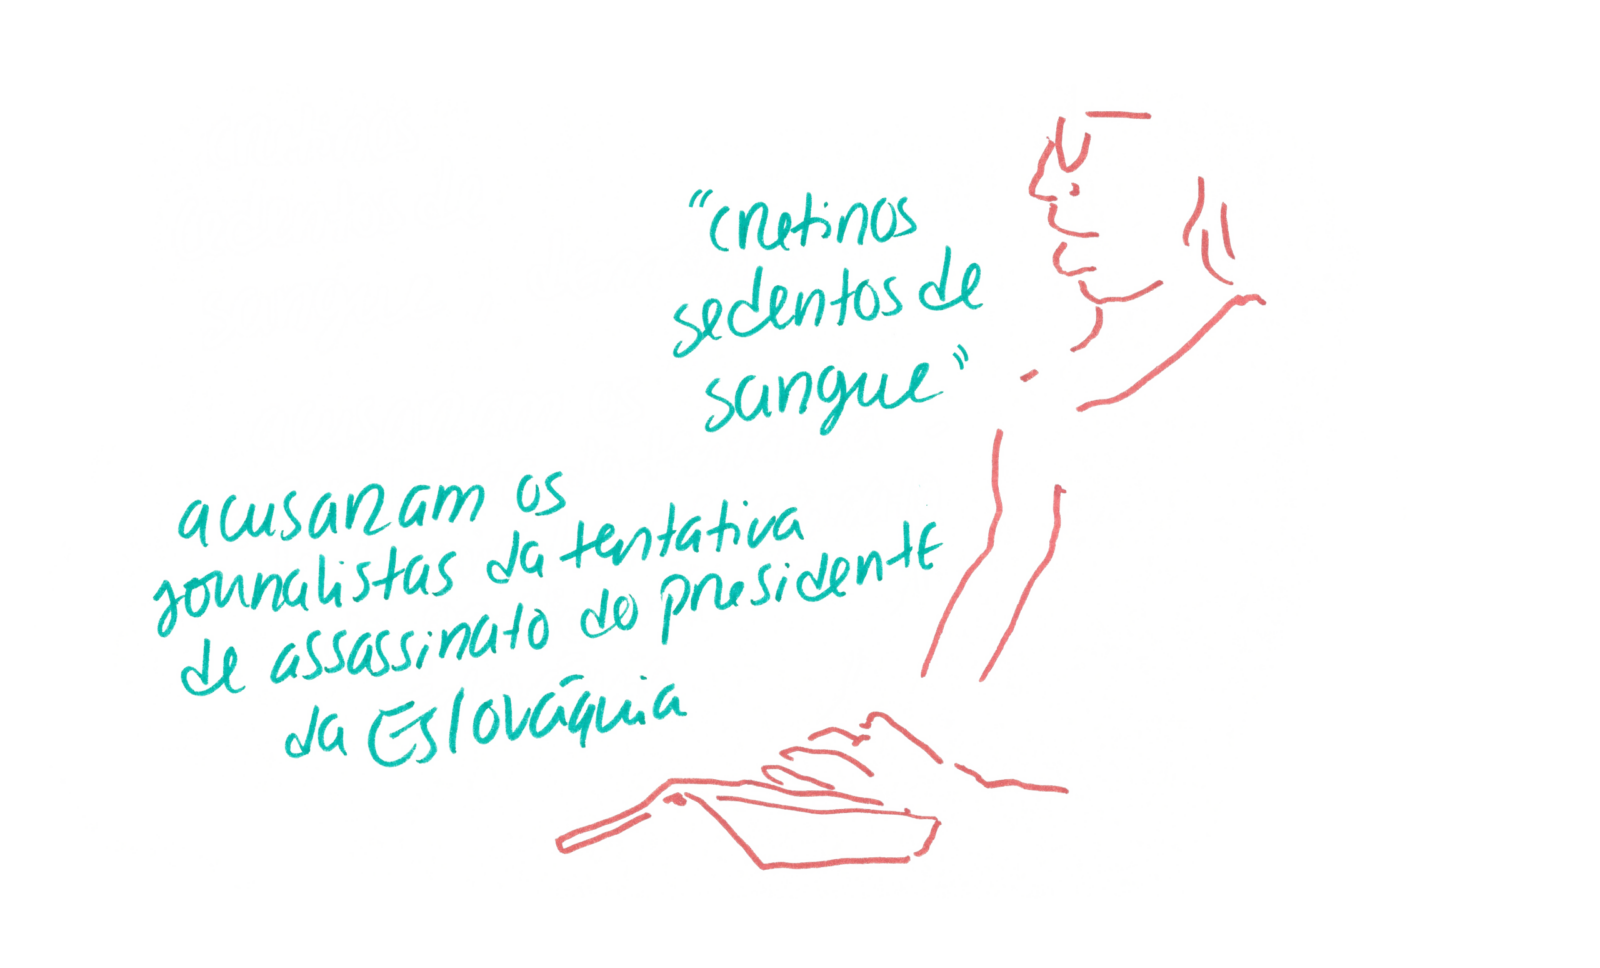 "cretinos
sedentos de
sangue"
acusaram os
jornalistas da tentativa
de assassinato do presidente
da Eslováquia